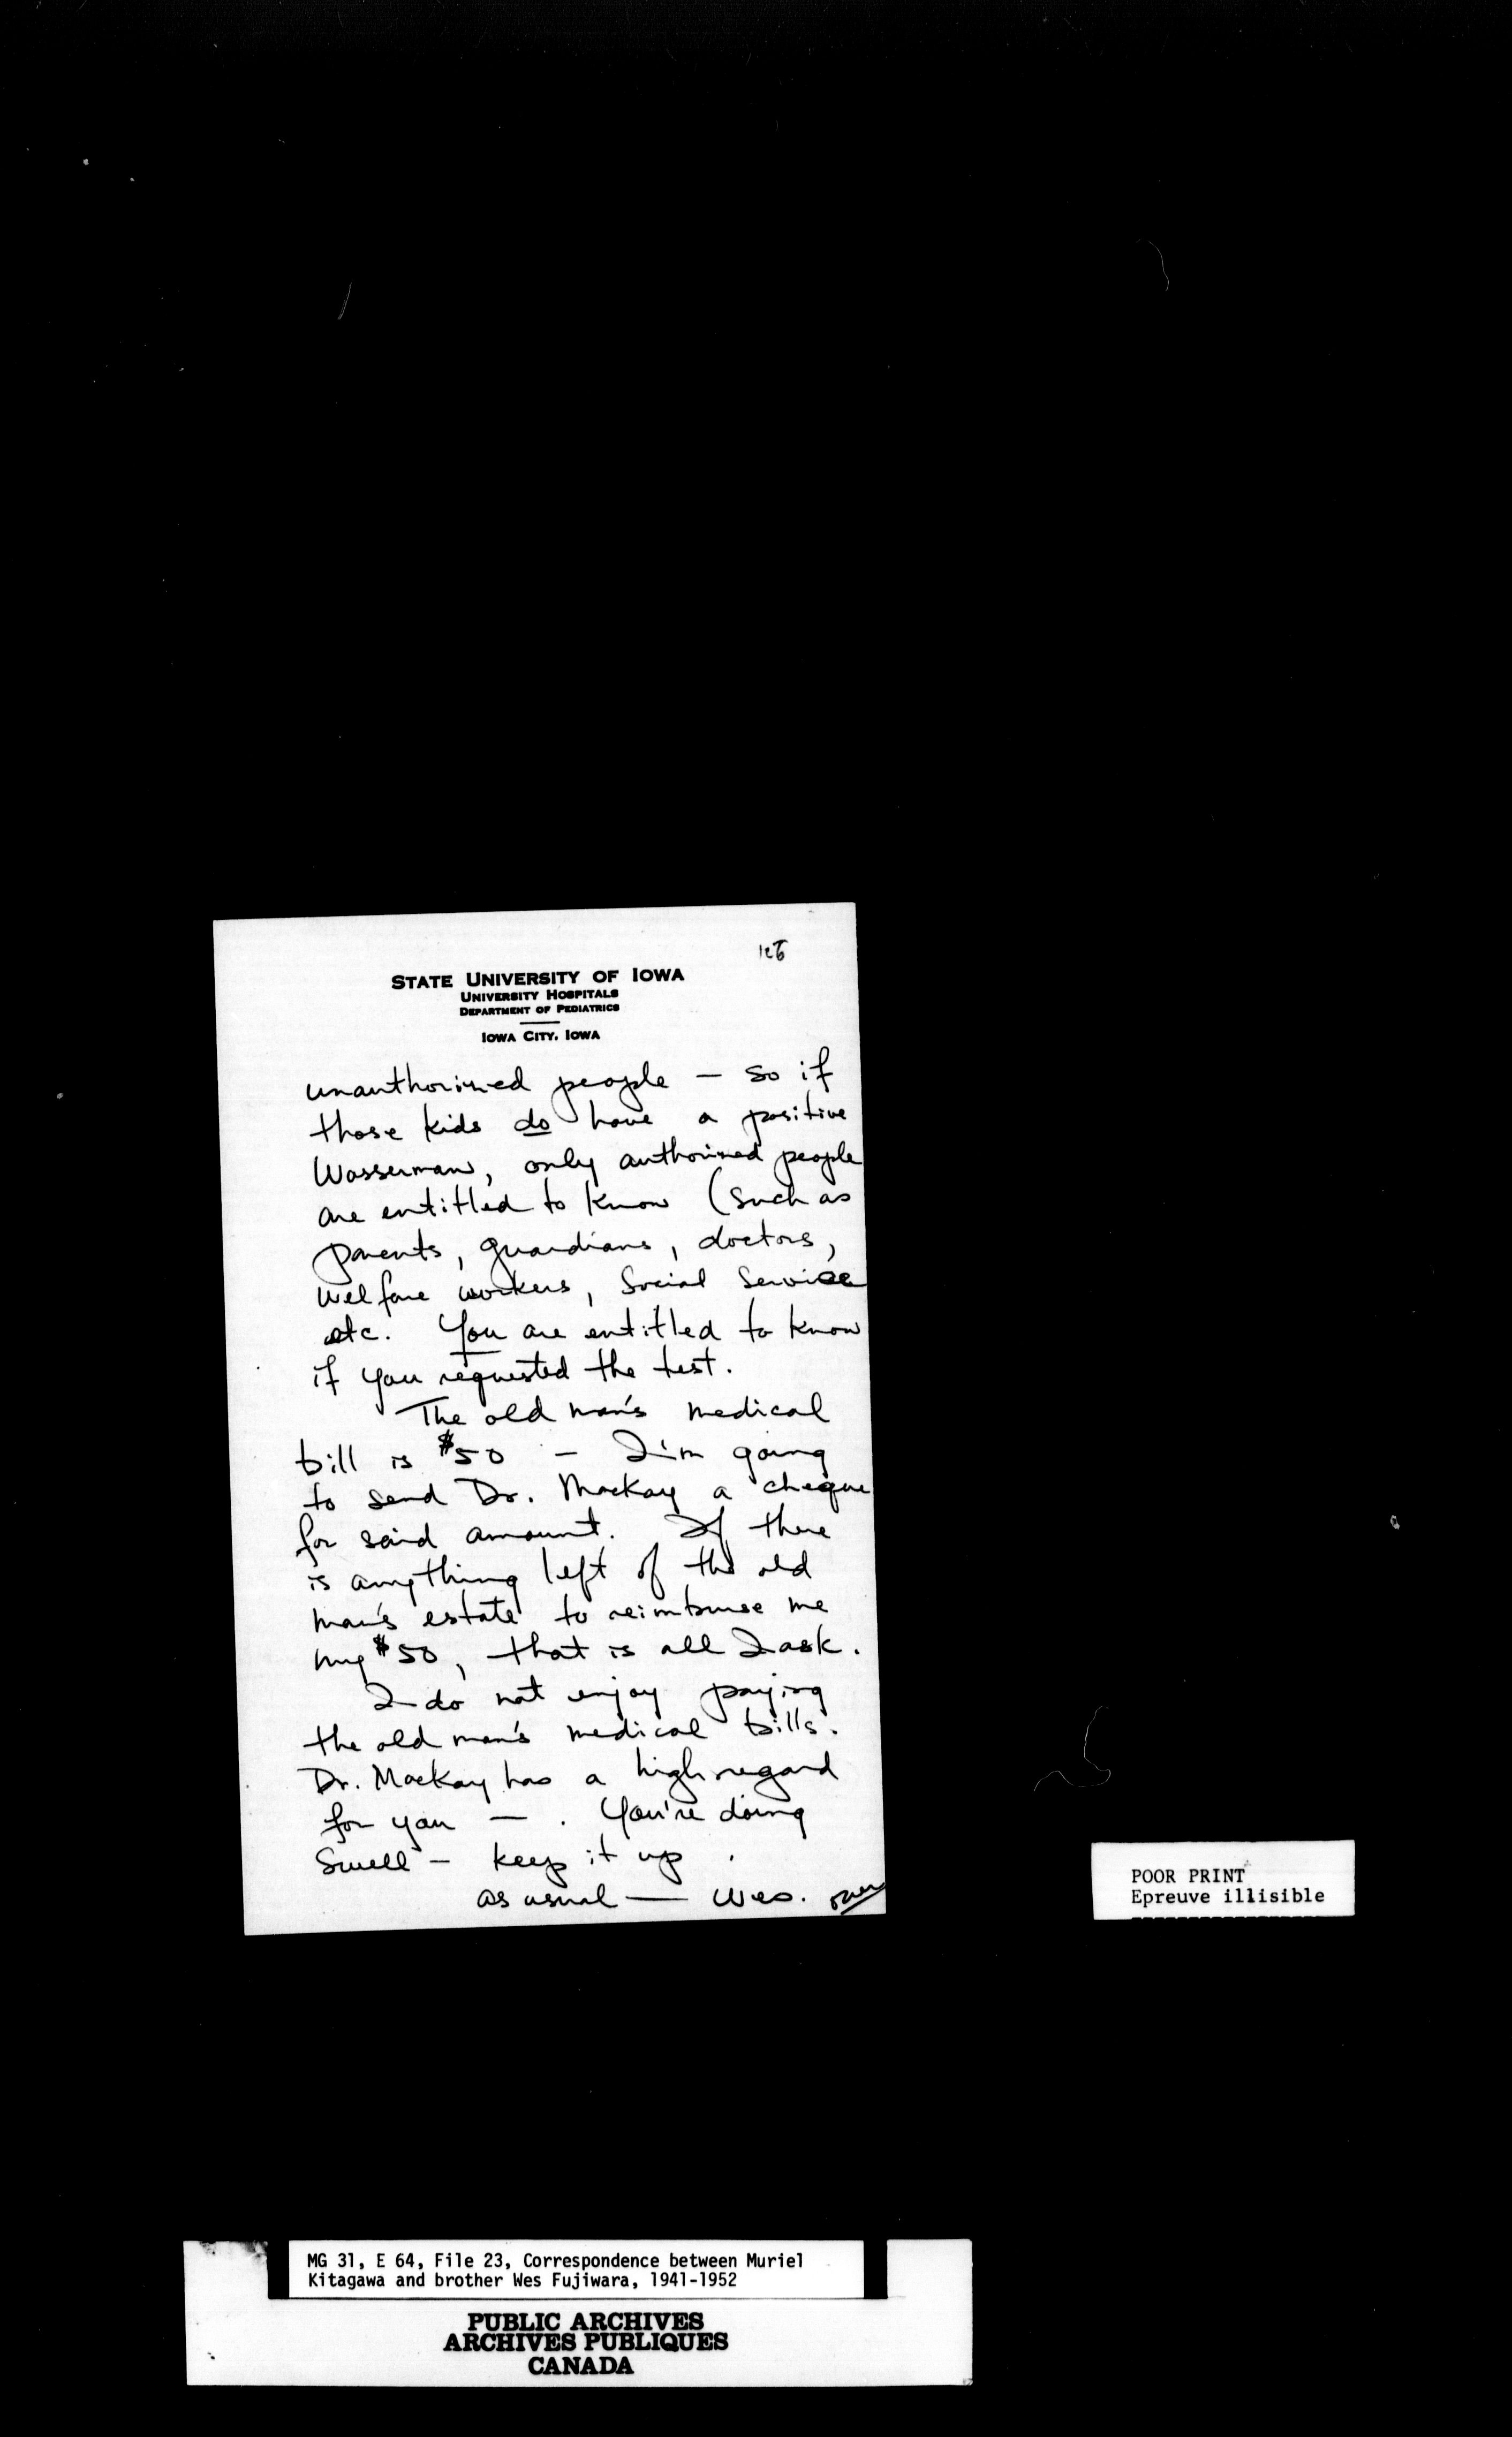 STATE UNIVERSITY OF IOWA
UNIVERSITY HOSPITALS
DEPARTMENT OF PEDIATRICS
IOWA CITY, IOWA
unauthorized people — so if
those kids do have a positive
Wasserman, only authorized people
are entitled to know (such as
parents, guardians, doctors,
welfare workers, social service
etc. You are entitled to know
if you requested the test.
The old man's medical
bill is $50 — I'm going
to send Dr. Mackay a cheque
for said amount. If there
is anything left of the old
man's estate to reimburse me
my $50, that is all I ask.
I do not enjoy paying
the old man's medical bills.
Dr. Mackay has a high regard
for you — . You're doing
swell — keep it up .
as usual — Wes. over
POOR PRINT
Epreuve illisible
MG 31, E 64, File 23, Correspondence between Muriel
Kitagawa and brother Wes Fujiwara, 1941-1952
PUBLIC ARCHIVES
ARCHIVES PUBLIQUES
CANADA